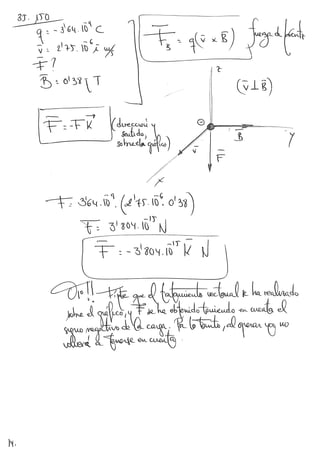 35. J50
q = -3'64.10⁻⁹ C
v̄ = 2'75.10⁶ ī m/s
F̄ ?
B̄ = 0'38 j̄ T
F̄_B = q(v̄ x B̄) fuerza de Lorentz
z
(v̄ ⊥ B̄)
F̄ = -F k̄ (dirección y sentido, sobre el gráfico)
B̄
y
v̄
F̄
x
F = 3'64.10⁻⁹. (2'75.10⁶. 0'38)
F = 3'804.10⁻¹⁵ N
F̄ = -3'804.10⁻¹⁵ k̄ N
Ojo!! Fijate que el tratamiento vectorial se ha realizado
sobre el gráfico, y F̄ se ha obtenido teniendo en cuenta el
signo negativo de la carga. Por lo tanto, al operar ya no
volveré a tenerse en cuenta
14.